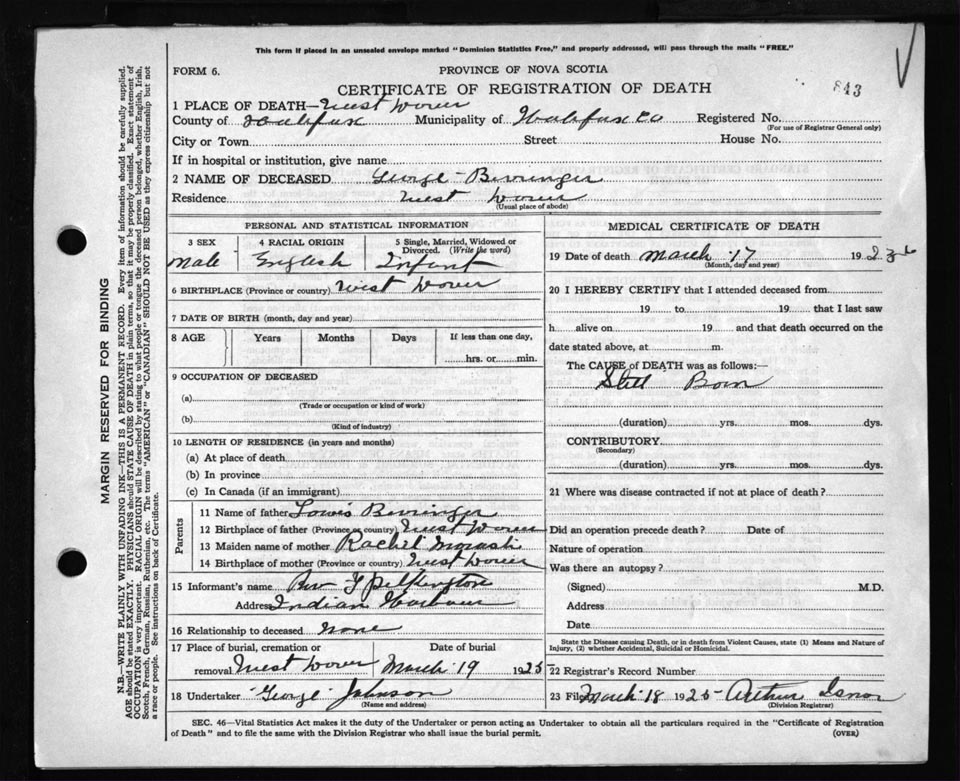 This form if placed in an unsealed envelope marked "Dominion Statistics Free," and properly addressed, will pass through the mails "FREE."
FORM 6.
PROVINCE OF NOVA SCOTIA
843
CERTIFICATE OF REGISTRATION OF DEATH
1 PLACE OF DEATH—West Dover
County of Halifax Municipality of Halifax Co Registered No.
(For use of Registrar General only)
City or Town Street House No.
If in hospital or institution, give name
2 NAME OF DECEASED George
Residence West Dover
(Usual place of abode)
PERSONAL AND STATISTICAL INFORMATION
3 SEX 4 RACIAL ORIGIN 5 Single, Married, Widowed or Divorced. (Write the word)
Male English Infant
6 BIRTHPLACE (Province or country) West Dover
7 DATE OF BIRTH (month, day and year)
8 AGE Years Months Days If less than one day,
hrs. or min.
9 OCCUPATION OF DECEASED
(a)
(Trade or occupation or kind of work)
(b)
(Kind of industry)
10 LENGTH OF RESIDENCE (in years and months)
(a) At place of death
(b) In province
(c) In Canada (if an immigrant)
Parents
11 Name of father Lowis
12 Birthplace of father (Province or country) West Dover
13 Maiden name of mother Rachel
14 Birthplace of mother (Province or country) West Dover
15 Informant's name Rev F Pilkington
Address Indian Harbour
16 Relationship to deceased None
17 Place of burial, cremation or Date of burial
removal West Dover March 19 1925
18 Undertaker George Johnson
(Name and address)
MEDICAL CERTIFICATE OF DEATH
19 Date of death March 17 19
(Month, day and year)
20 I HEREBY CERTIFY that I attended deceased from
19 to 19 that I last saw
h alive on 19 and that death occurred on the
date stated above, at m.
The CAUSE of DEATH was as follows:—
Still Born
(duration) yrs. mos. dys.
CONTRIBUTORY
(Secondary)
(duration) yrs. mos. dys.
21 Where was disease contracted if not at place of death?
Did an operation precede death? Date of
Nature of operation
Was there an autopsy?
(Signed) M.D.
Address
Date
State the Disease causing Death, or in death from Violent Causes, state (1) Means and Nature of
Injury, (2) whether Accidental, Suicidal or Homicidal.
22 Registrar's Record Number
23 Filed March 18 1925 Arthur Isnor
(Division Registrar)
SEC. 46—Vital Statistics Act makes it the duty of the Undertaker or person acting as Undertaker to obtain all the particulars required in the "Certificate of Registration
of Death" and to file the same with the Division Registrar who shall issue the burial permit.
(OVER)
MARGIN RESERVED FOR BINDING
N.B.—WRITE PLAINLY WITH UNFADING INK—THIS IS A PERMANENT RECORD. Every item of information should be carefully supplied.
AGE should be stated EXACTLY. PHYSICIANS should STATE CAUSE OF DEATH in plain terms, so that it may be properly classified. Exact statement of
OCCUPATION is very important. RACIAL ORIGIN will be described by stating to what people or tongue the deceased person belonged, whether English, Irish,
Scotch, French, German, Russian, Ruthenian, etc. The terms "AMERICAN" or "CANADIAN" SHOULD NOT BE USED as they express citizenship but not
a race or people. See instructions on back of Certificate.